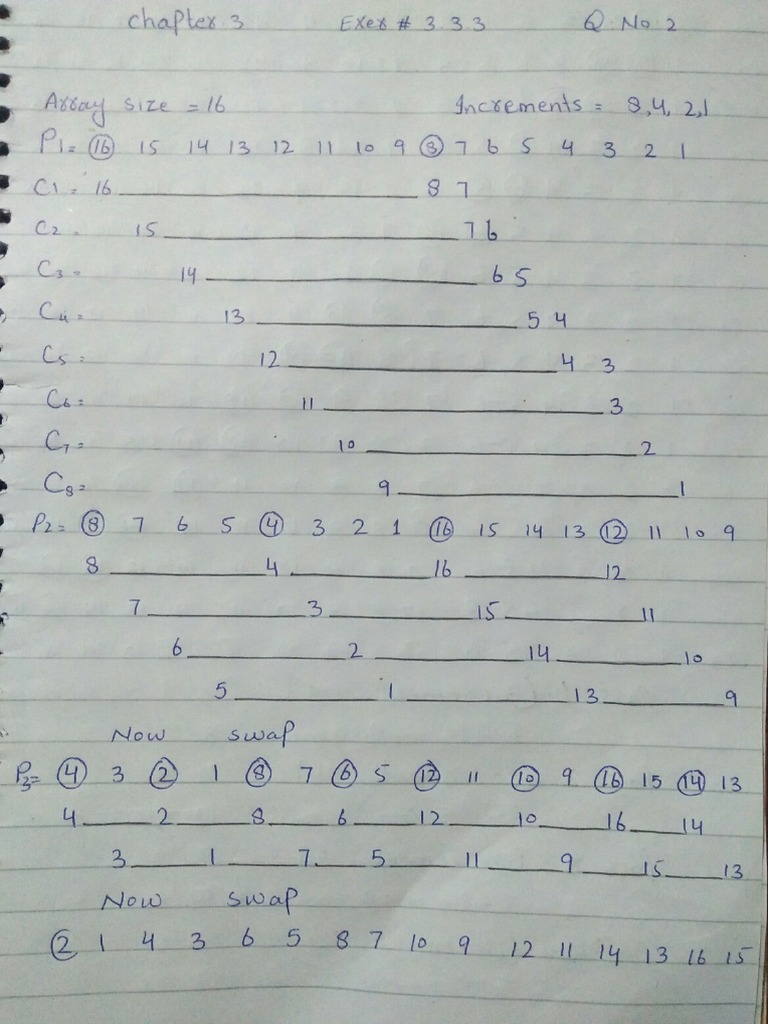 Chapter 3 Exer # 3.3.3 Q. No. 2
Array size = 16 Increments = 8,4,2,1
P1= 16 15 14 13 12 11 10 9 8 7 6 5 4 3 2 1
C1 = 16 8 7
C2 = 15 7 6
C3 = 14 6 5
C4 = 13 5 4
C5 = 12 4 3
C6 = 11 3
C7 = 10 2
C8 = 9 1
P2= 8 7 6 5 4 3 2 1 16 15 14 13 12 11 10 9
8 4 16 12
7 3 15 11
6 2 14 10
5 1 13 9
Now swap
P3= 4 3 2 1 8 7 6 5 12 11 10 9 16 15 14 13
4 2 8 6 12 10 16 14
3 1 7 5 11 9 15 13
Now swap
2 1 4 3 6 5 8 7 10 9 12 11 14 13 16 15